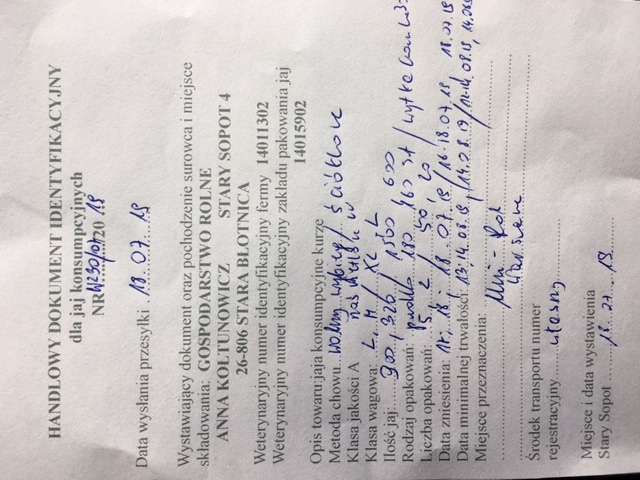 HANDLOWY DOKUMENT IDENTYFIKACYJNY
dla jaj konsumpcyjnych
NR W230/07/20 19
Data wysłania przesyłki 18.07.19
Wystawiający dokument oraz pochodzenie surowca i miejsce
składowania: GOSPODARSTWO ROLNE
ANNA KOŁTUNOWICZ STARY SOPOT 4
26-806 STARA BŁOTNICA
Weterynaryjny numer identyfikacyjny fermy 14011302
Weterynaryjny numer identyfikacyjny zakładu pakowania jaj
14015902
Opis towaru: jaja konsumpcyjne kurze
Metoda chowu: wolny wybieg / ściółkowe
Klasa jakości A
Klasa wagowa: L, M / XL, L
Ilość jaj: 300, 320 / 1500, 600
Rodzaj opakowań: pudło 180, 160 szt /
Liczba opakowań: 5, 2 / 50, 20
Data zniesienia: 17.18 18.07.19 /16-18.07.19 18.07.19
Data minimalnej trwałości: 13,14.08.19, 14.08.19 / 14.08.19, 14.08.19
Miejsce przeznaczenia:
Warszawa
Środek transportu numer
rejestracyjny własny
Miejsce i data wystawienia
Stary Sopot 18.07.19